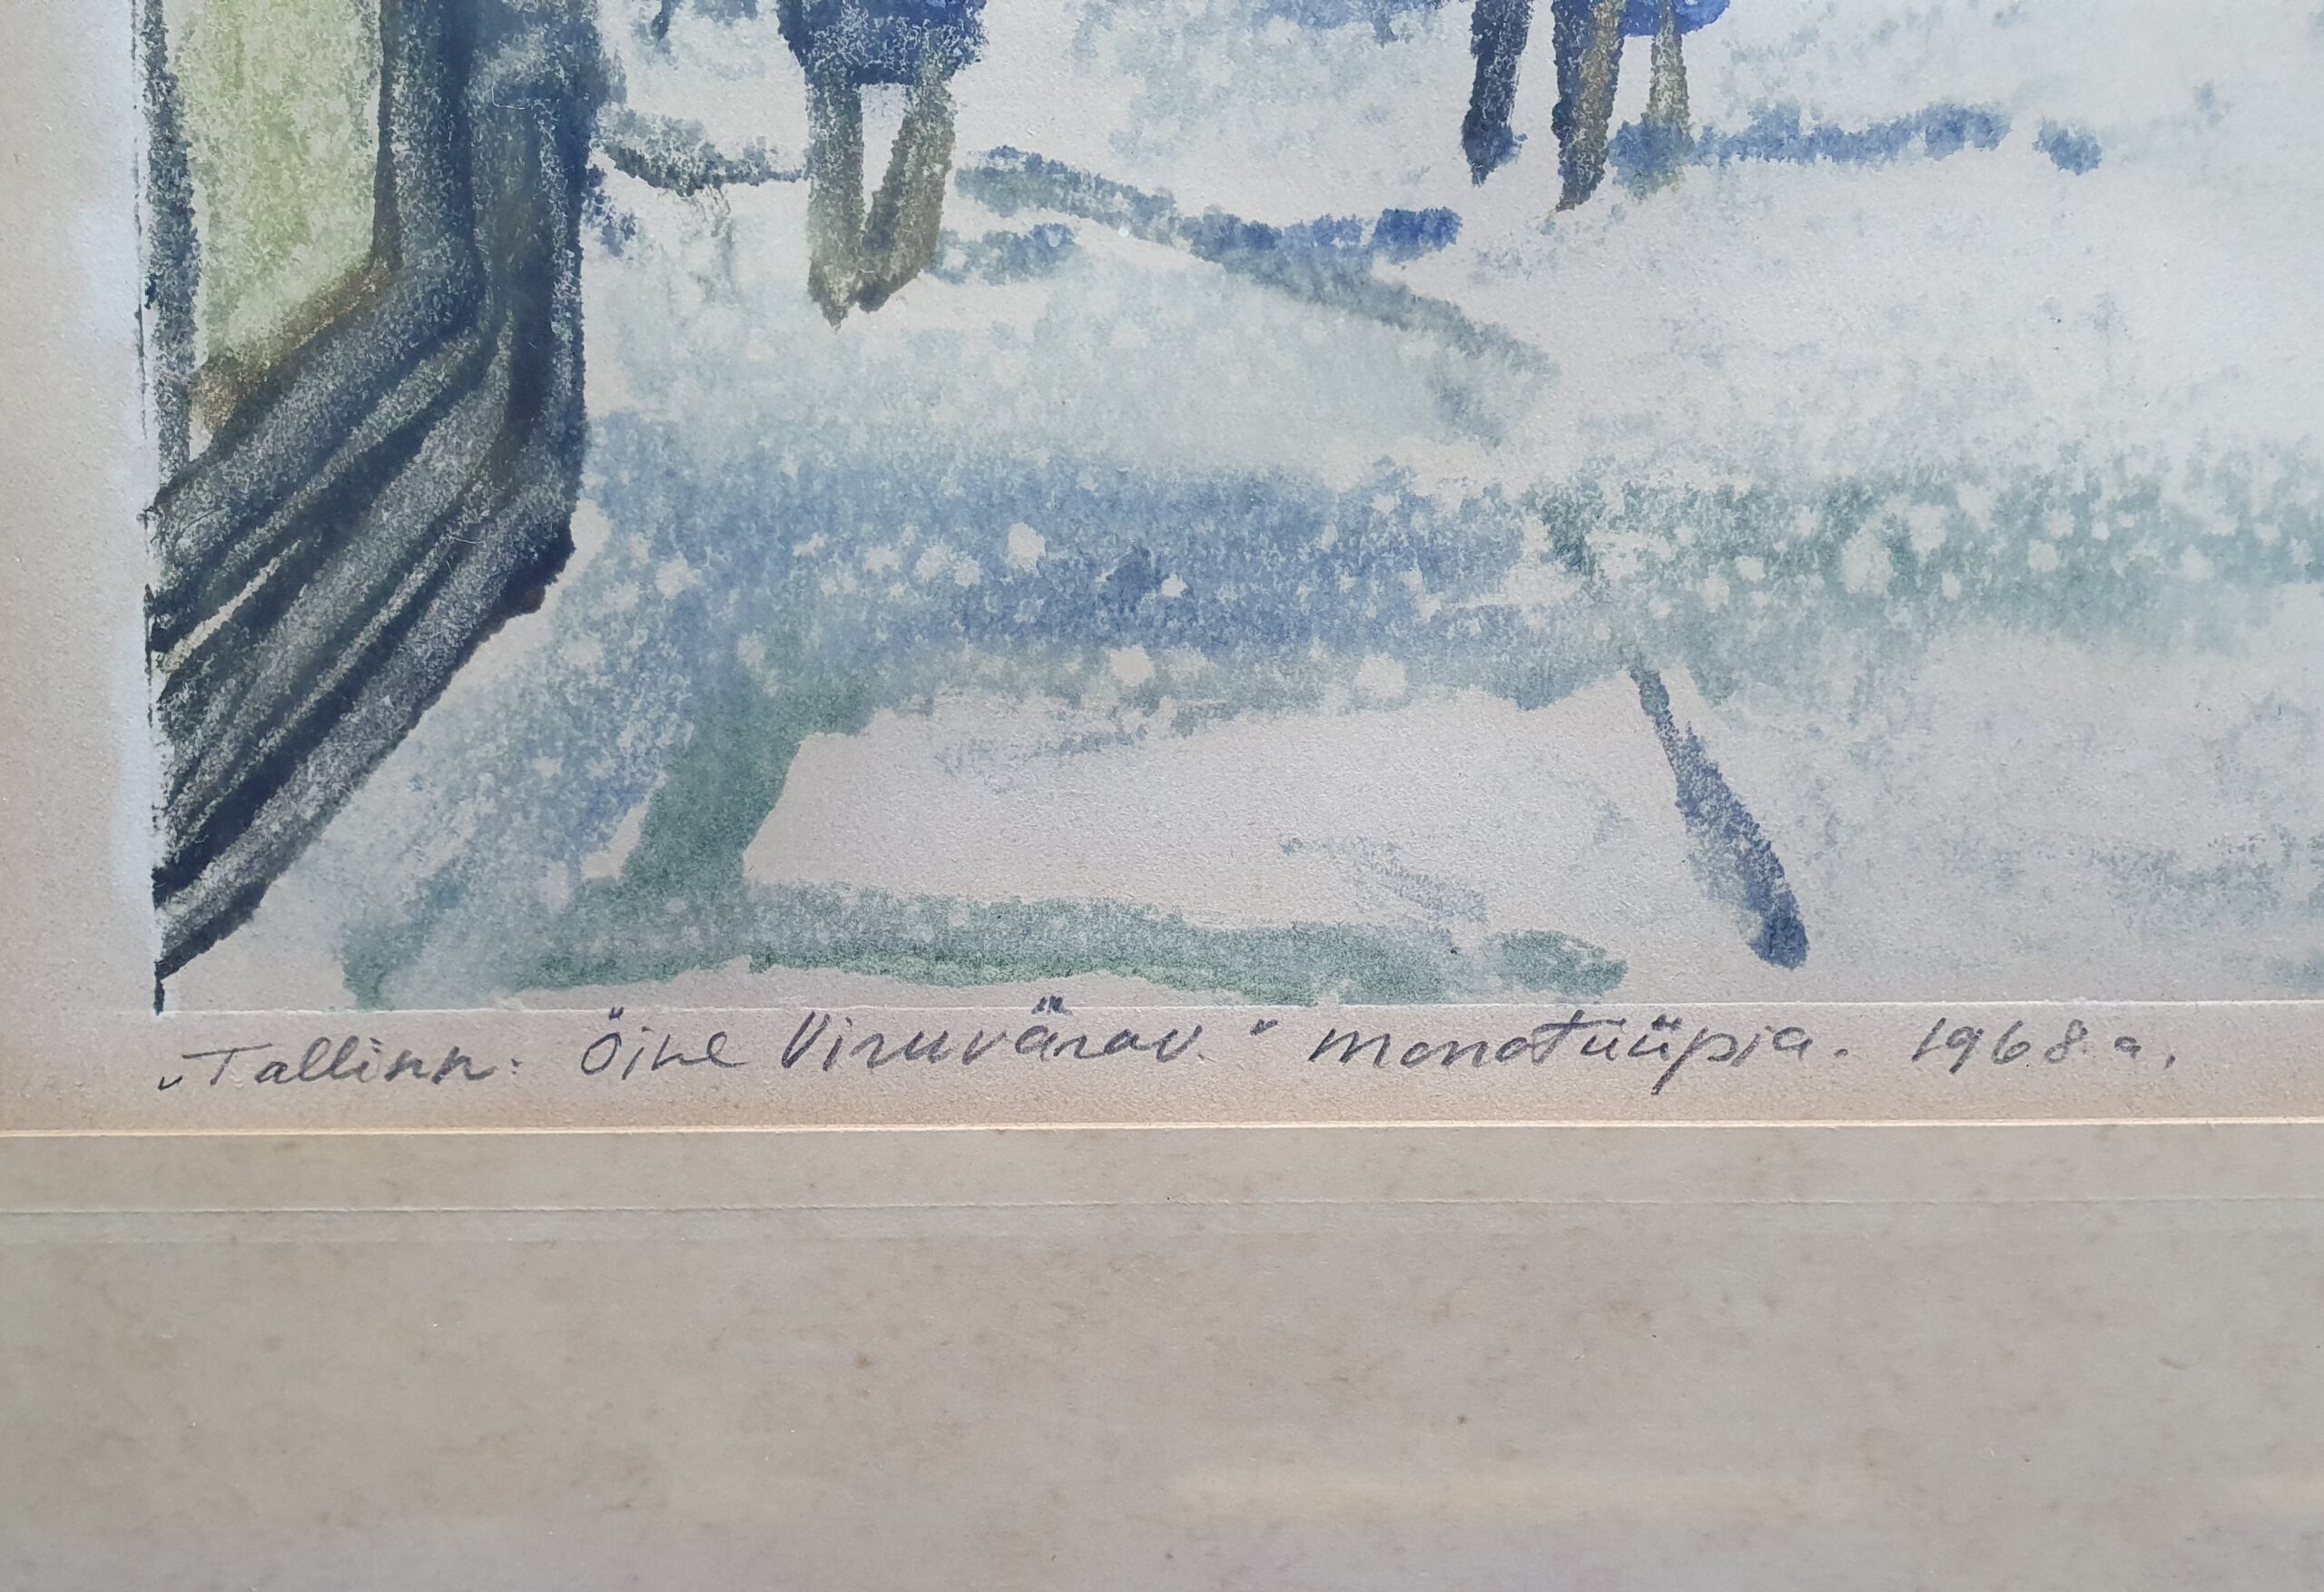 „Tallinn. Öine Viruvärav." monotüüpia. 1968.a.